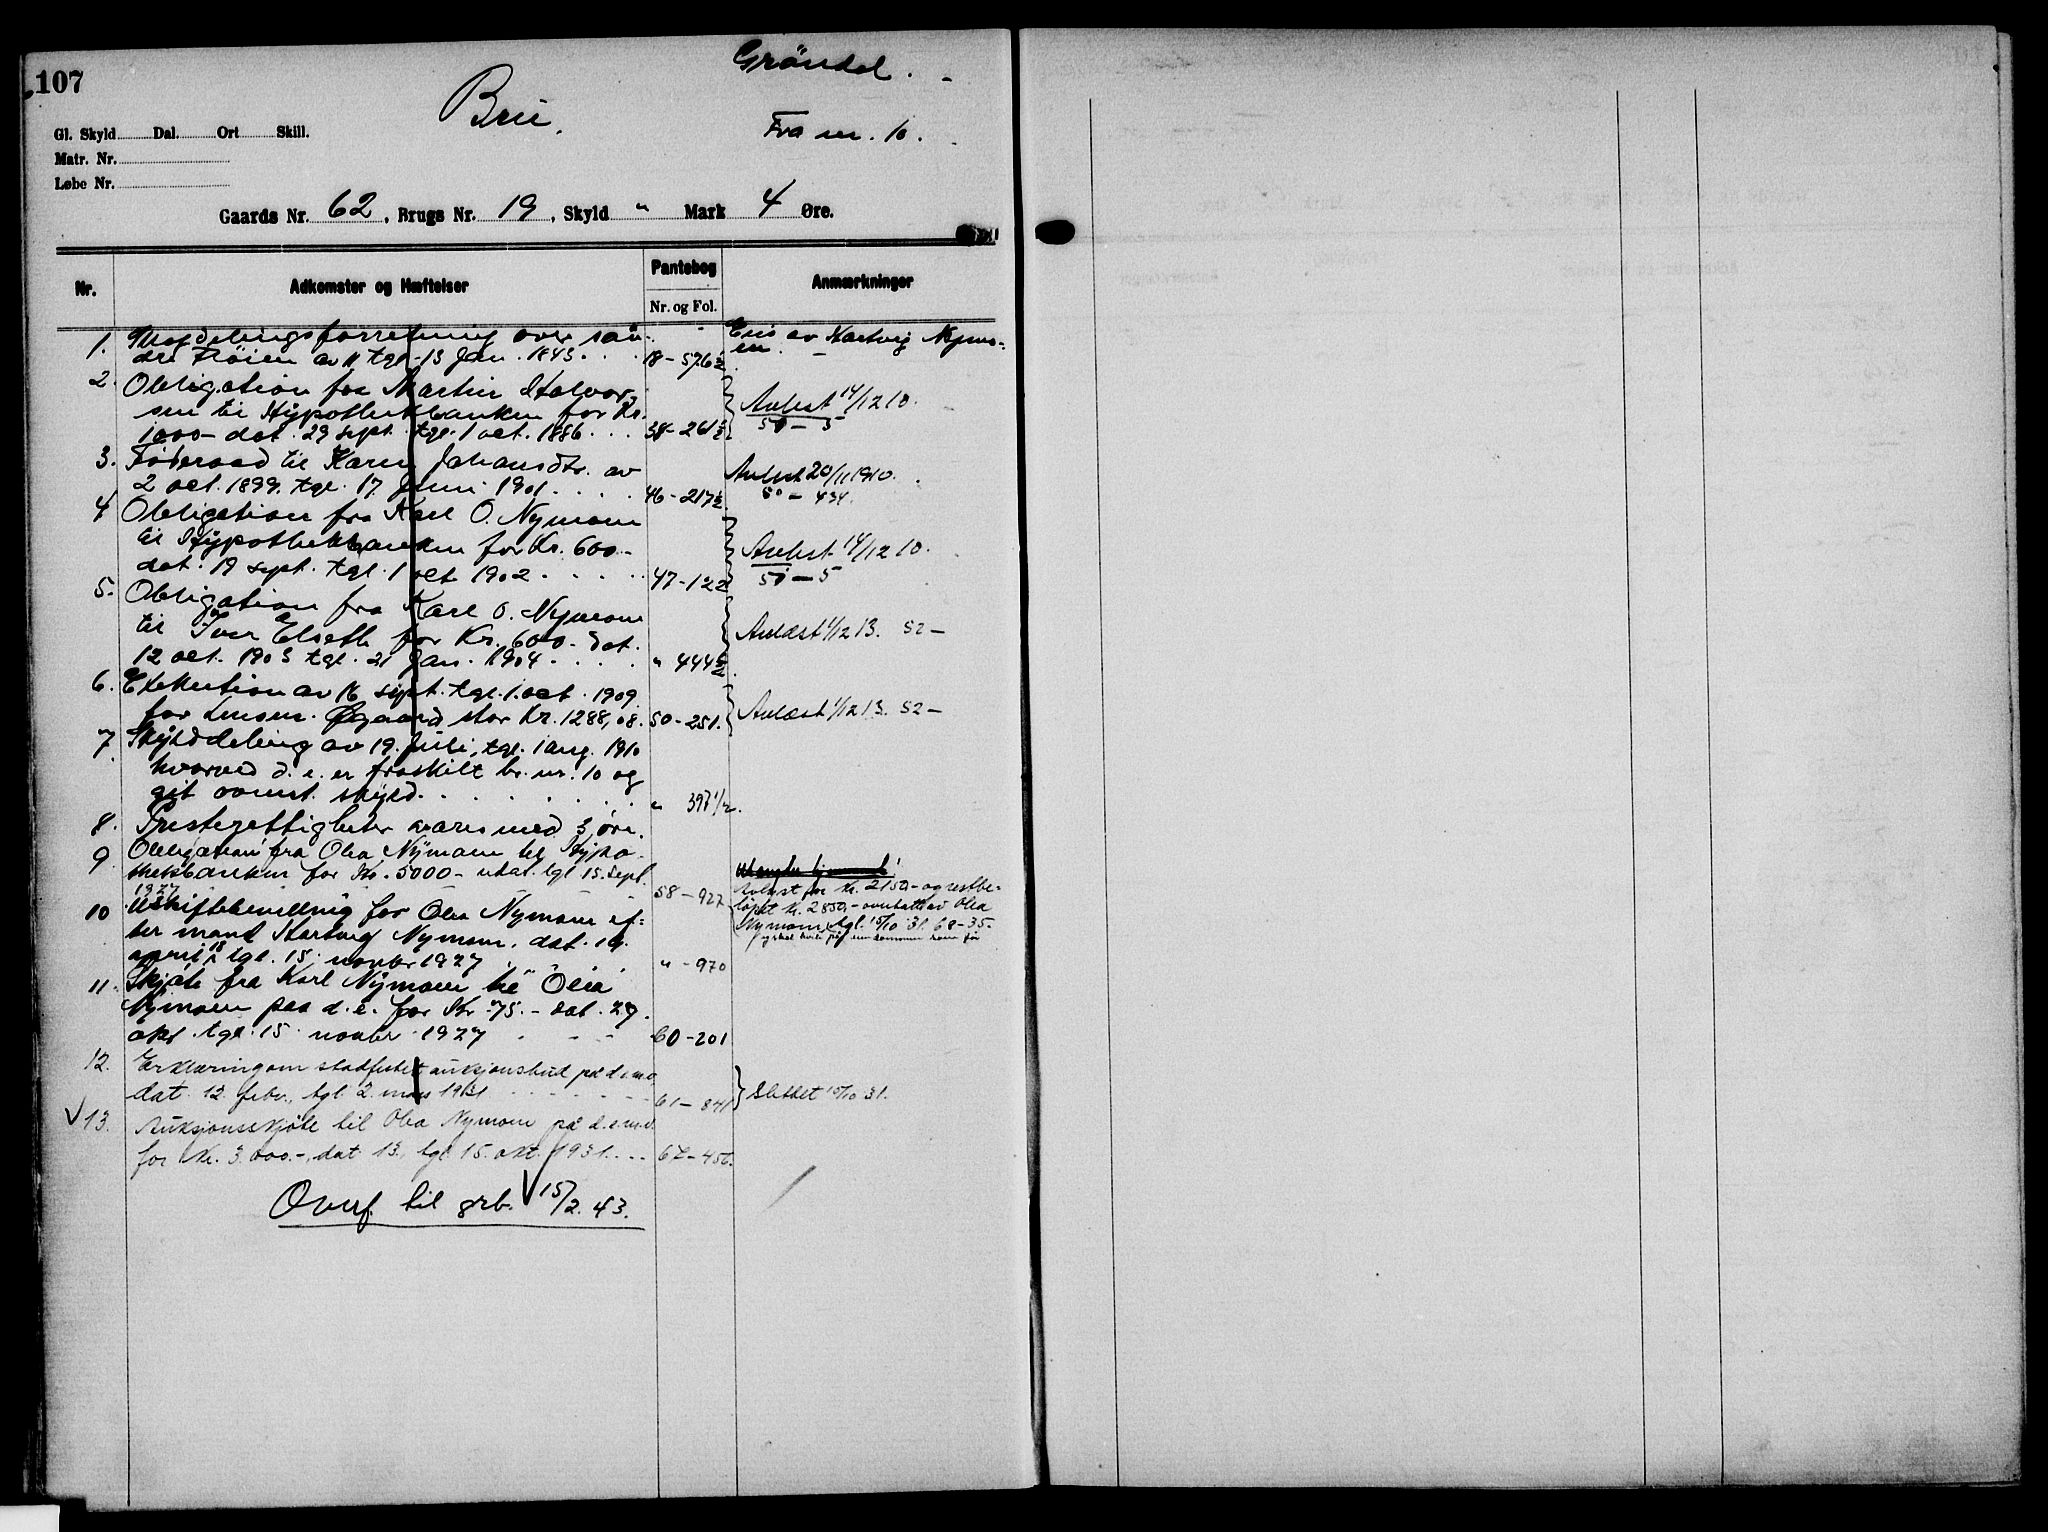 107
Gröndal.
Brü.
Fra nr. 10.
Gl. Skyld Dal. Ort Skill.
Matr. Nr.
Løbe Nr.
Gaards Nr. 62, Brugs Nr. 19, Skyld " Mark 4 Øre.
Nr.
Adkomster og Hæftelser
Pantebog
Nr. og Fol.
Anmærkninger
1. Utskiftningsforretning over søn-
dre Frøien av 11 tgl. 13 Jan. 1843. 18-576½
Eies av Hartvig Nymo-
en.
2. Obligation fra Martin Halvor-
sen til Hypothekbanken for Kr.
1000- dat. 29 sept. tgl. 1 oct. 1886. 38-261½
Avlest 14/12 10.
51-5
3. Föderaad til Karen Johansdtr. av
2 oct. 1899. tgl. 17 Juni 1901. 46-217½
Avlest 20/11 1910.
50-434.
4 Obligation fra Karl O. Nymoen
til Hypothekbanken for Kr. 600-
dat. 19 sept. tgl. 1 oct 1902. 47-122
Avlest 14/12 10.
51-5
5. Obligation fra Karl O. Nymoen
til Iver Elseth for Kr. 600- dat.
12 oct. 1903 tgl. 21 Jan. 1904. " 444½
Avlæst 1/12 13. 52-
6. Exekution av 16 sept. tgl. 1. oct. 1909
for Lensm. Øgaard stor Kr. 1288,08. 50-251.
Avlæst 1/12 13. 52-
7. Skylddeling av 19. Juli, tgl. 1 aug. 1910
hvorved d. e. er fraskilt br. nr. 10 og
git ovenst. skyld. " 397½.
8. Presterettigheter aværes med 3 øre.
9 Obligation fra Olea Nymoen til Hypo-
thekbanken for Kr. 5000- udat. tgl 15. sept.
1927 58-927
Avlyst for Kr. 2150,- og restbe-
löpet Kr. 2850,- overtatt av Olea
Nymoen, tgl. 15/10 31. 68-35-
10 Uskiftebevilling for Olea Nymoen ef-
ter mand Hartvig Nymoen. dat. 19.
april 18 tgl. 15. novbr 1927 " -970
11. Skjöte fra Karl Nymoen til Olea
Nymoen paa d. e. for Kr 75.- dat. 29.
okt. tgl. 15 novbr. 1927 60-201
12. Erklæring om stadfestet auksjonsbud på d. e. m. v.
dat. 12. febr., tgl 2. mars 1931 61-841
Slettet 15/10 31.
V 13. Auksjonsskjöte til Olea Nymoen på d. e. m. v.
for Kr. 3.000.-, dat 13., tgl. 15. okt. 1931. 62-456.
Overf. til grb. V 15/2. 43.